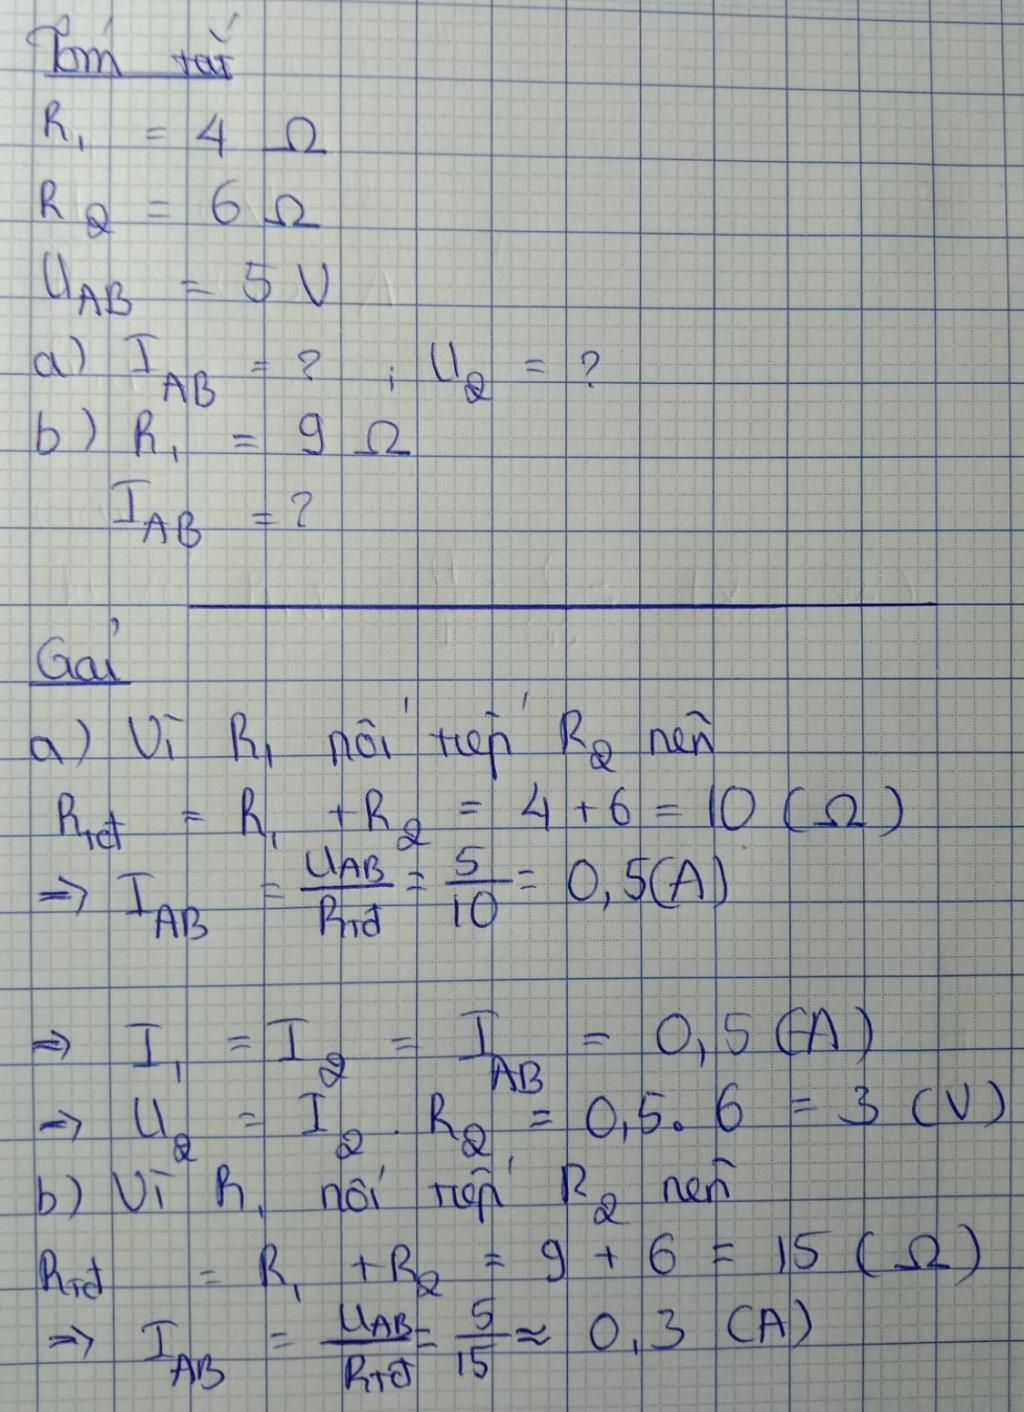 Tóm tắt
R₁ = 4 Ω
R₂ = 6 Ω
U_AB = 5 V
a) I_AB = ? ; U₂ = ?
b) R₁ = 9 Ω
I_AB = ?
Gải
a) Vì R₁ nối tiếp R₂ nên
R_tđ = R₁ + R₂ = 4 + 6 = 10 (Ω)
=> I_AB = U_AB/R_tđ = 5/10 = 0,5(A)
=> I₁ = I₂ = I_AB = 0,5 (A)
=> U₂ = I₂ . R₂ = 0,5. 6 = 3 (V)
b) Vì R₁ nối tiếp R₂ nên
R_tđ = R₁ + R₂ = 9 + 6 = 15 (Ω)
=> I_AB = U_AB/R_tđ = 5/15 ≈ 0,3 (A)